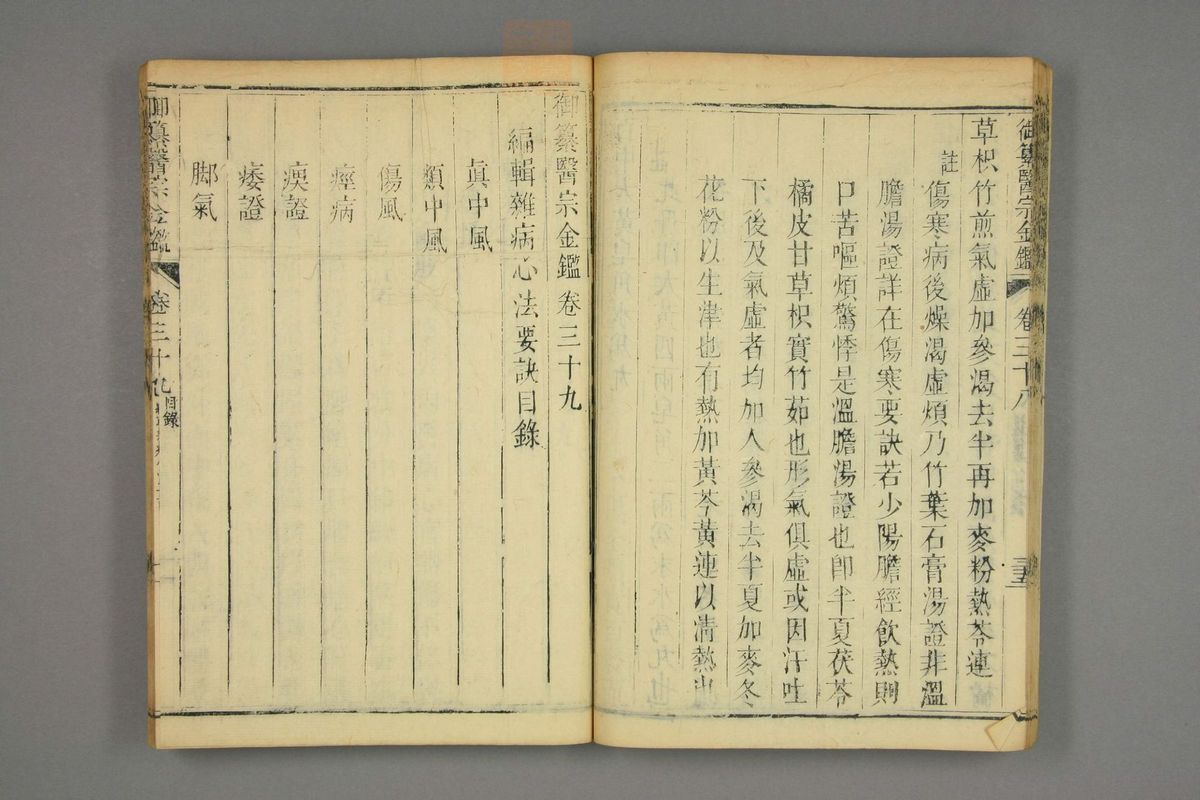 御纂醫宗金鑑 卷三十八
草枳竹煎氣虛加參渴去半再加麥粉熱芩連
註 傷寒病後燥渴虛煩乃竹葉石膏湯證非溫
膽湯證詳在傷寒要訣若少陽膽經飲熱則
口苦嘔煩驚悸是溫膽湯證也卽半夏茯苓
橘皮甘草枳實竹茹也形氣俱虛或因汗吐
下後及氣虛者均加人參渴去半夏加麥冬
花粉以生津也有熱加黃芩黃連以清熱也
御纂醫宗金鑑 卷三十九
編輯雜病心法要訣目錄
眞中風
類中風
傷風
痙病
痿證
脚氣
御纂醫宗金鑑 卷三十九 目錄